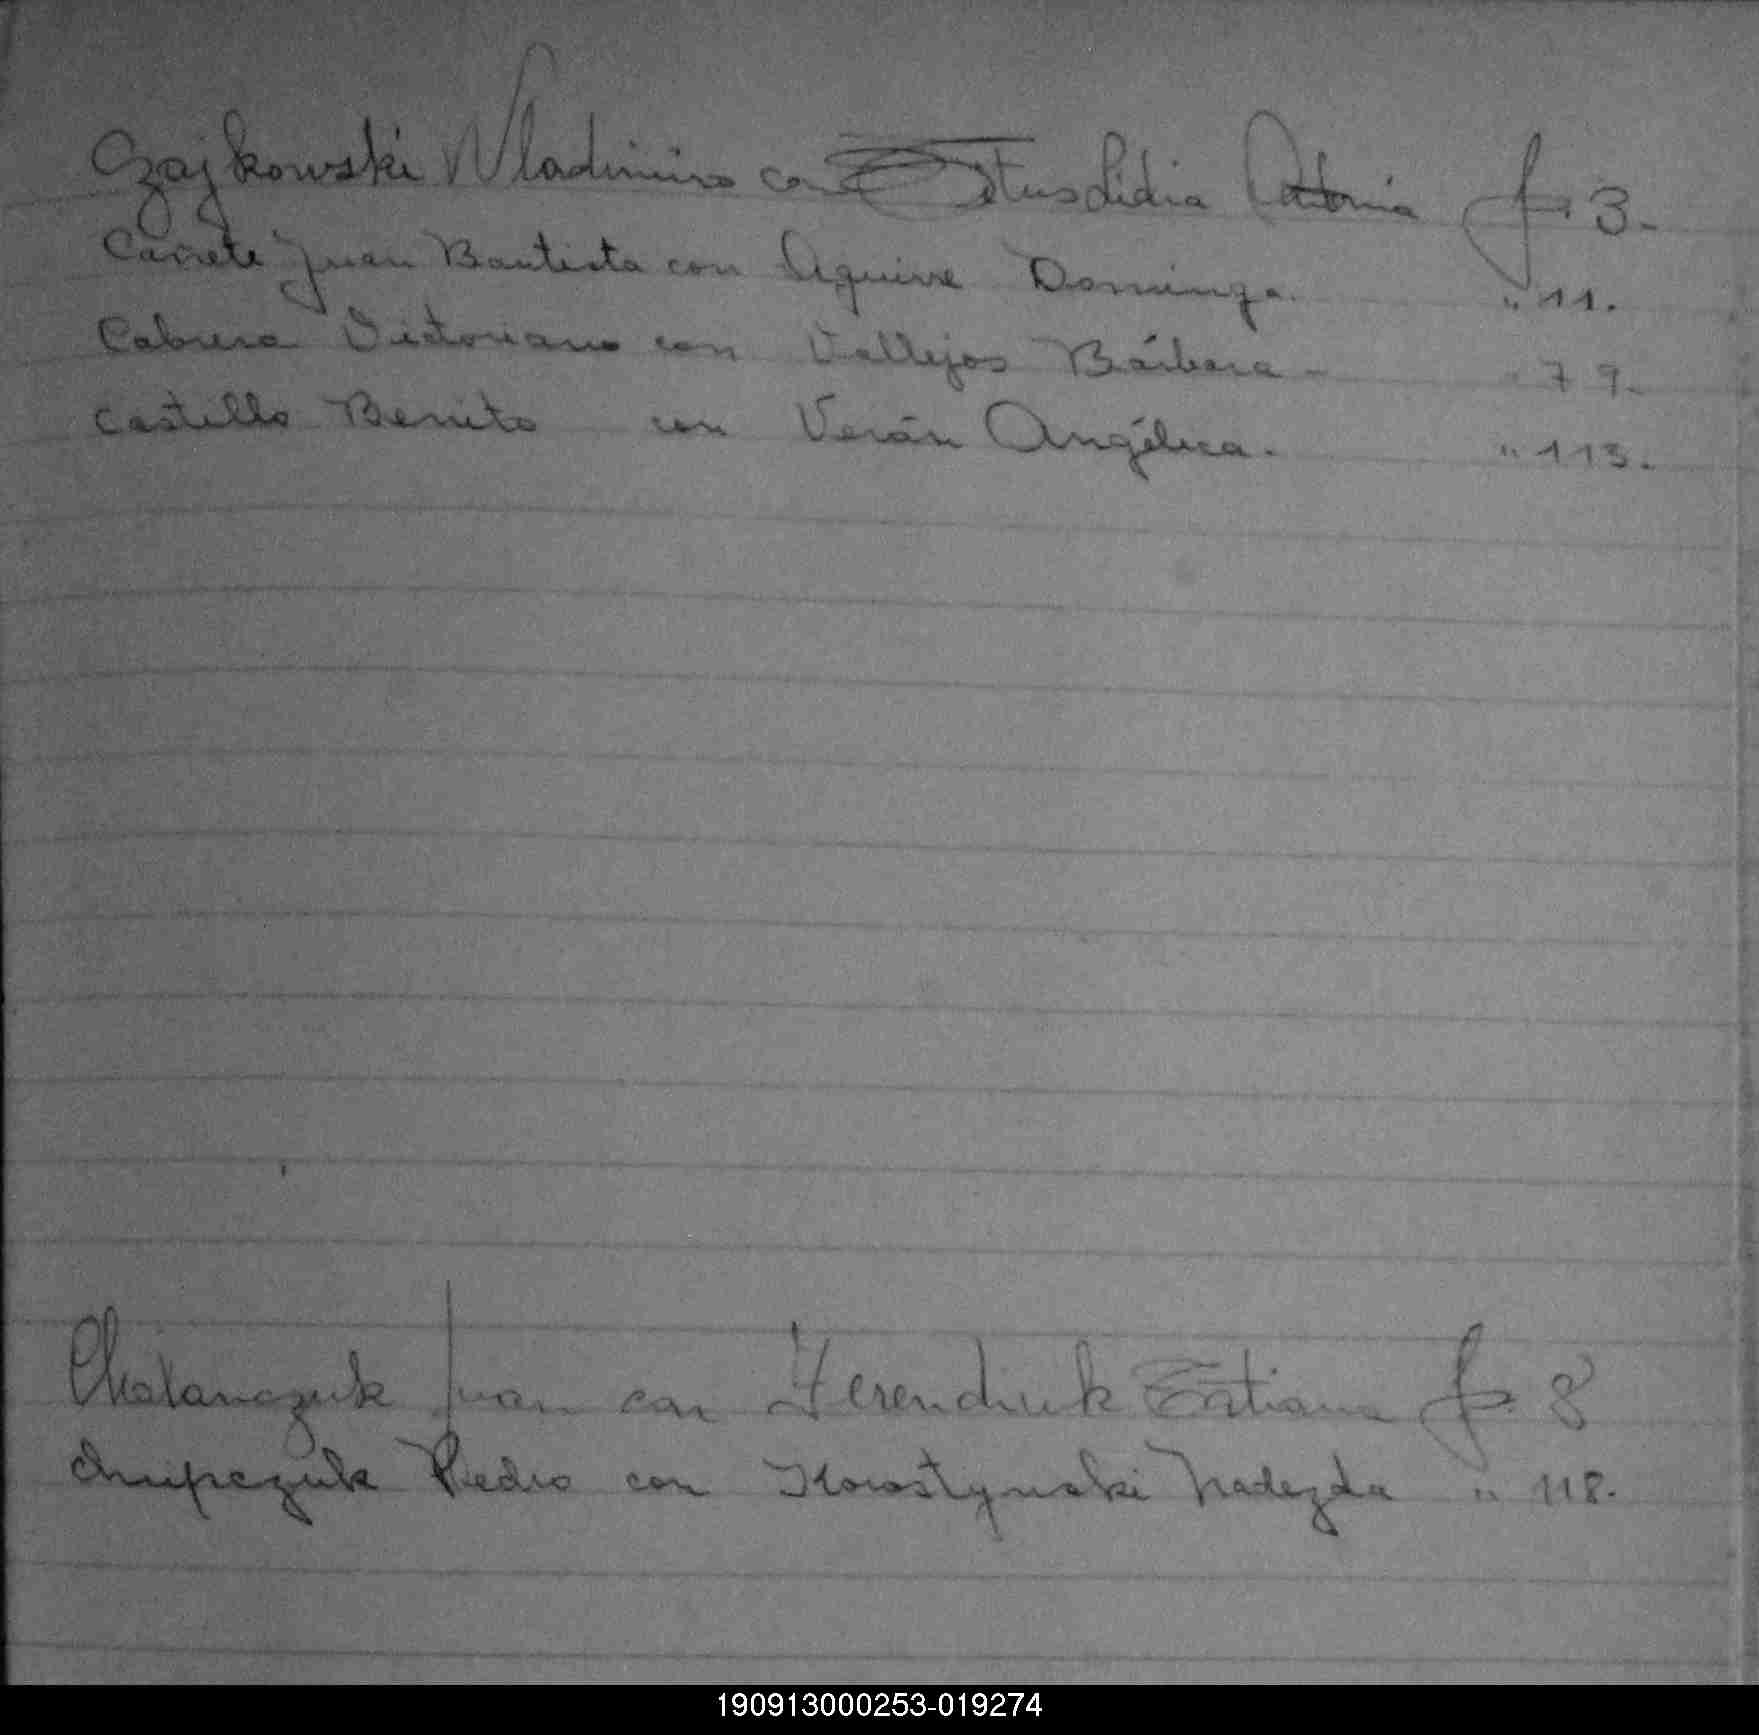 Czajkowski Wladimiro con Titus Lidia Antonia fs. 3.-
Cañete Juan Bautista con Aguirre Dominga. " 11.
Cabrera Victoriano con Vallejos Bárbara - " 79.-
Castillo Benito con Verón Angélica. " 113.
Juan con Terendiuk Tatiana fs. 8
Pedro con Korostynski Nadezda " 118.
190913000253-019274